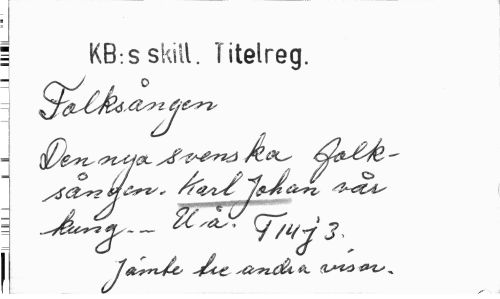 KB:s skill. Titelreg.
Folksången
Den nya svenska folk-
sången. Karl Johan vår
kung -- U å. T 14 j 3.
Jämte tre andra visor.